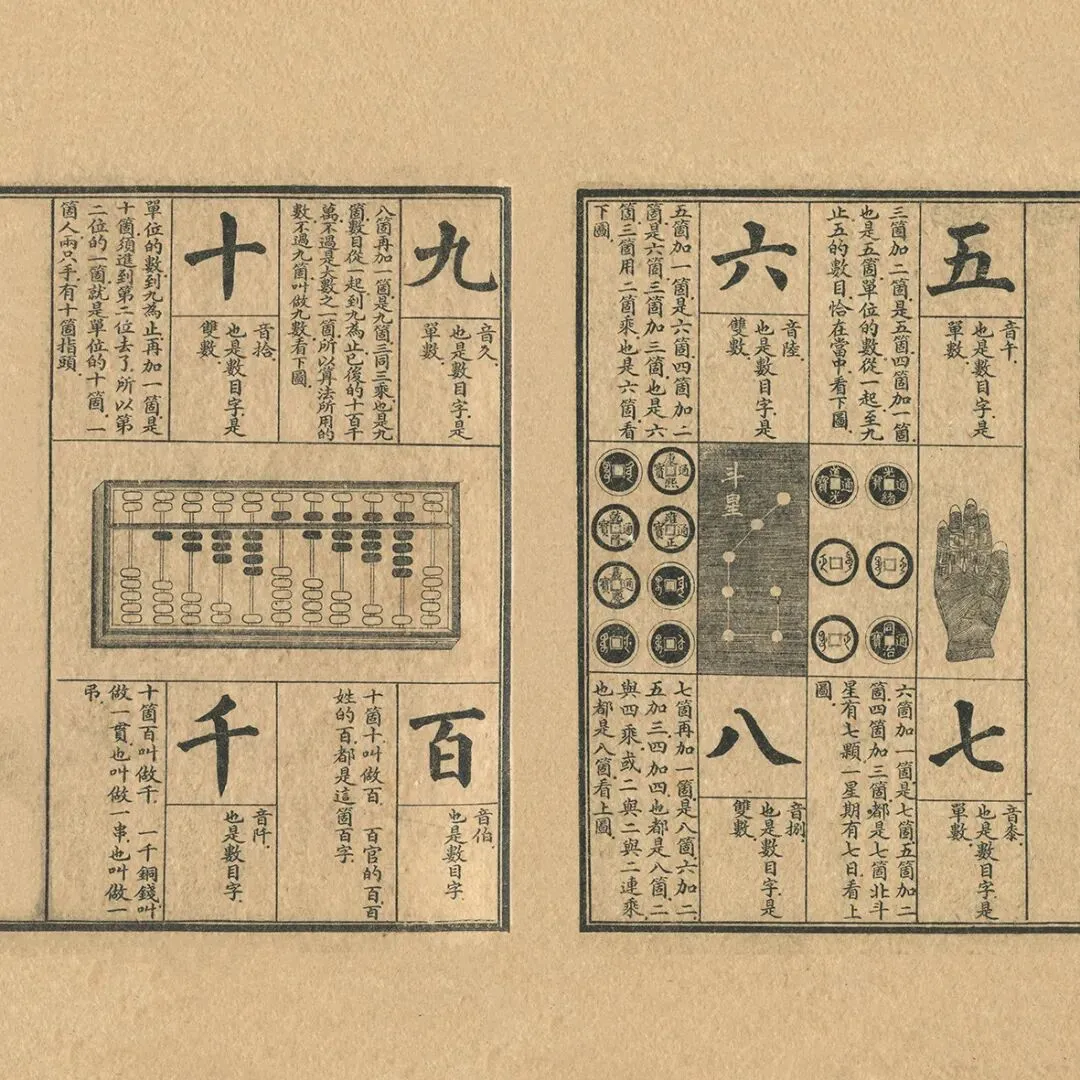 五
音午.
也是數目字.是
單數.
三箇加二箇.是五箇.四箇加一箇.
也是五箇.單位的數.從一起.至九
止.五的數目.恰在當中.看下圖.
六
音陸.
也是數目字.是
雙數.
五箇加一箇.是六箇.四箇加二
箇.是六箇.三箇加三箇.也是六
箇.三箇用二箇乘.也是六箇.看
下圖.
光緒通寶
道光通寶
同治通寶
斗星
康熙通寶
雍正通寶
乾隆通寶
嘉慶通寶
七
音桼.
也是數目字.是
單數.
六箇加一箇.是七箇.五箇加二
箇.四箇加三箇.都是七箇.北斗
星有七顆.一星期有七日.看上
圖.
八
音捌.
也是數目字.是
雙數.
七箇再加一箇.是八箇.六加二.
五加三.四加四.也都是八箇.二
與四乘.或二與二與二連乘.
也都是八箇.看上圖.
九
音久.
也是數目字.是
單數.
八箇再加一箇.是九箇.三同三乘.也是九
箇.數目從一起.到九為止.已後的十百千
萬.不過是大數之一箇.所以算法所用的
數.不過九箇.叫做九數.看下圖.
十
音拾.
也是數目字.是
雙數.
單位的數.到九為止.再加一箇.是
十箇.須進到第二位去了.所以第
二位的一箇.就是單位的十箇.一
箇人兩只手.有十箇指頭.
百
音伯.
也是數目字.
十箇十.叫做百.　百官的百.百
姓的百.都是這箇百字.
千
音阡.
也是數目字.
十箇百叫做千.　一千銅錢.叫
做一貫.也叫做一串.也叫做一
弔.